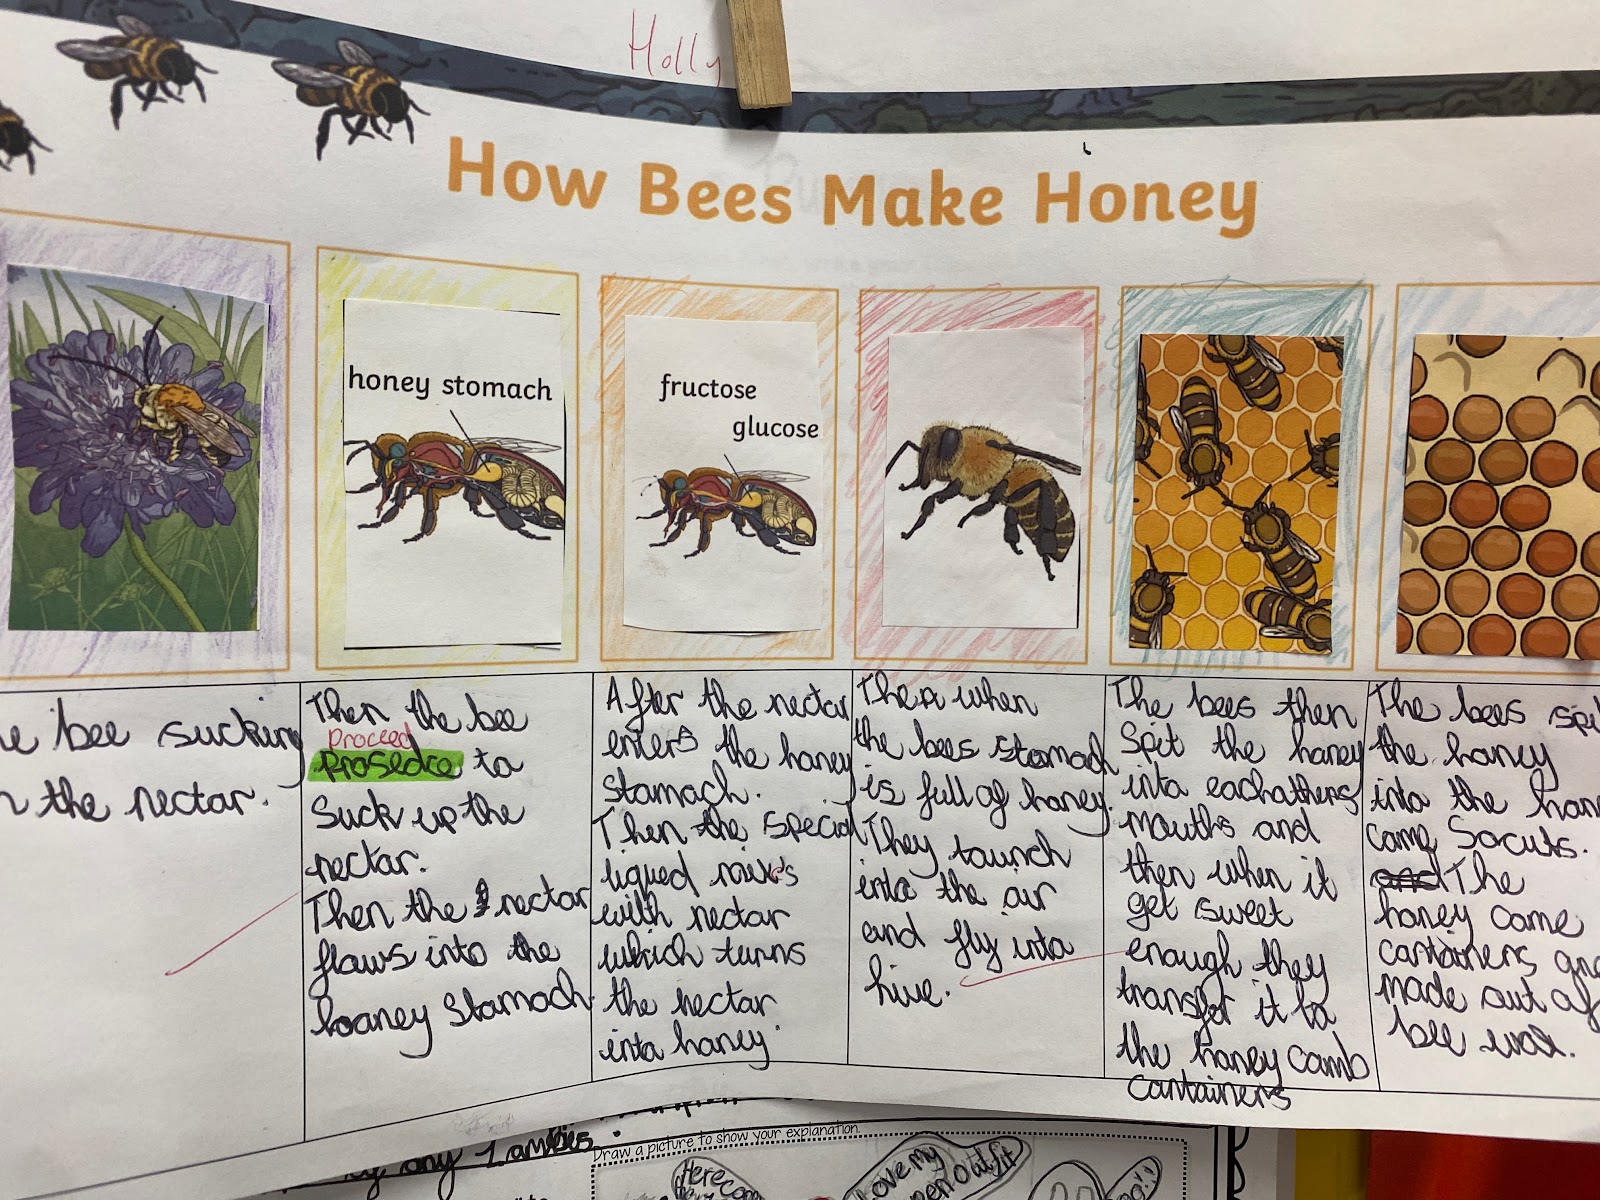 Holly
How Bees Make Honey
honey stomach
fructose
glucose
bee sucking
the nectar.
Then the bee
Proceed
prosedce to
Suck up the
nectar.
Then the nectar
flows into the
hoaney stomach
After the nectar
enters the honey
stomach.
Then the special
liqued mixes
with nectar
which turns
the nectar
into honey
Then when
the bees stomach
is full of honey.
They launch
into the air
and fly into
hive.
The bees then
Spit the honey
into eachothers
mouths and
then when it
get sweet
enough they
transfer it to
the honey comb
containers
The bees
the honey
into the
comb Socuts.
and The
honey come
containers
made out of
bee wax.
any
Draw a picture to show your explanation.
Love my
outfit